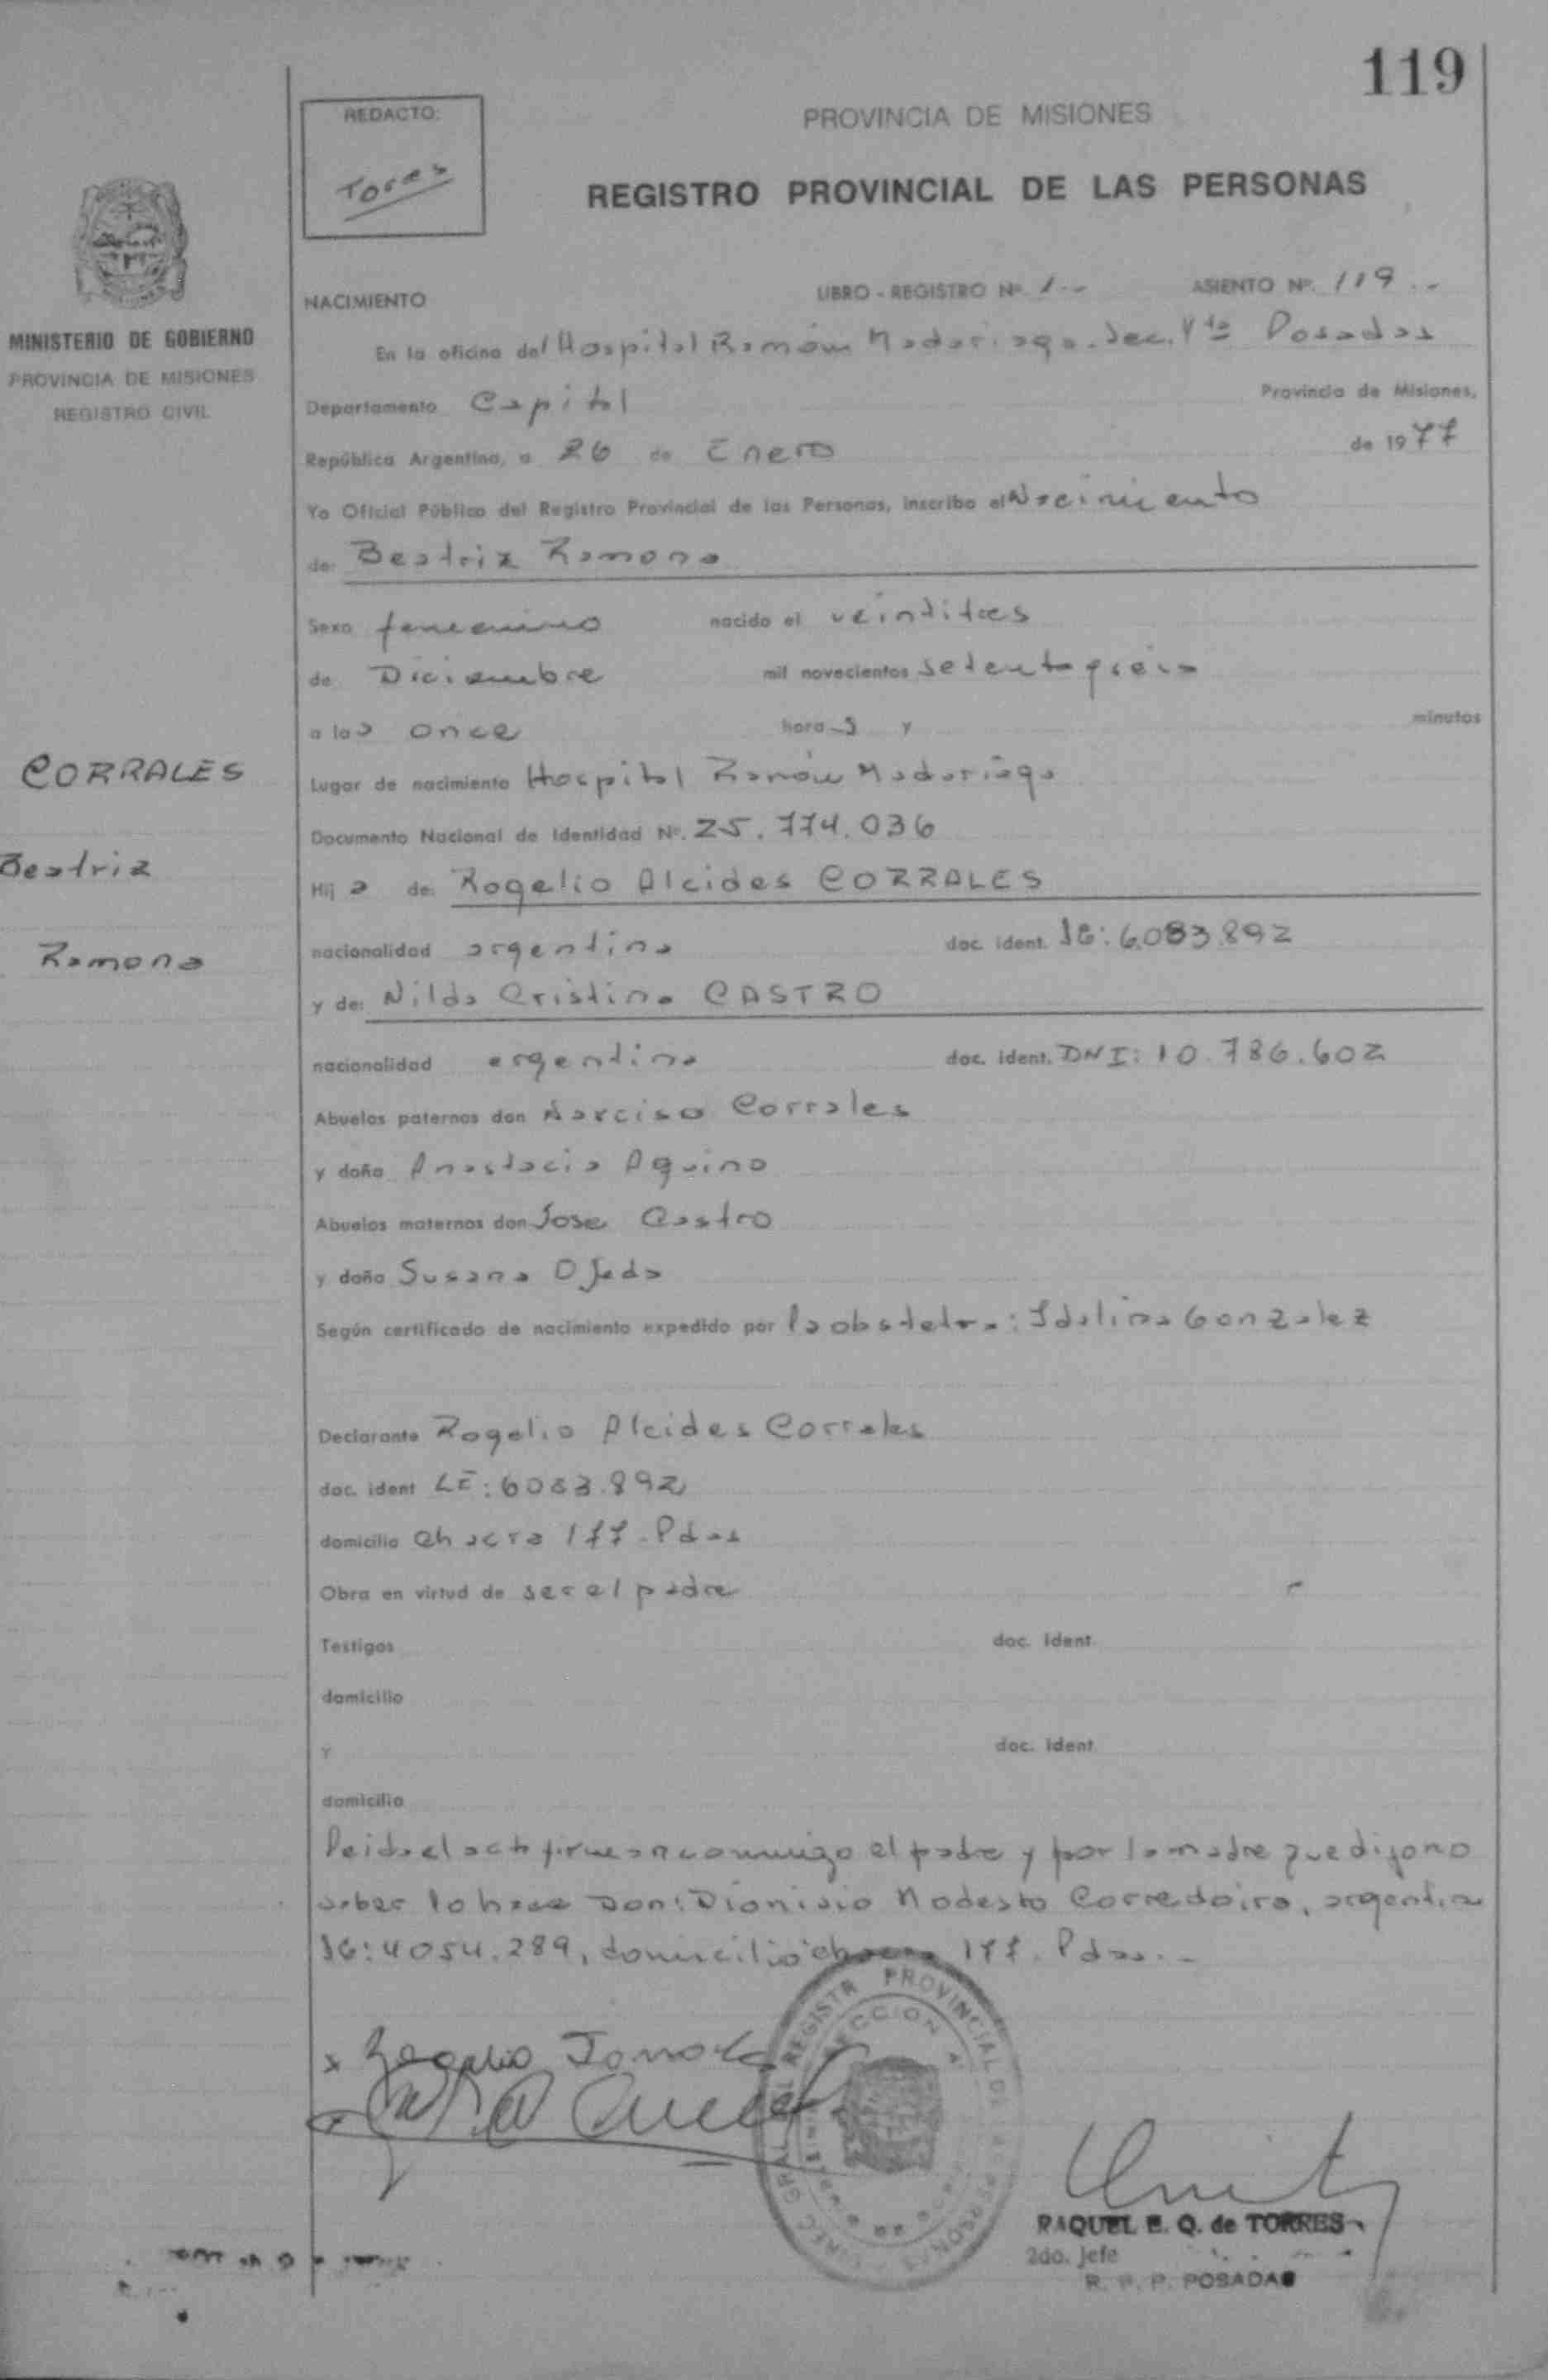 119
REDACTO:
Torres
PROVINCIA DE MISIONES
REGISTRO PROVINCIAL DE LAS PERSONAS
MINISTERIO DE GOBIERNO
PROVINCIA DE MISIONES
REGISTRO CIVIL
NACIMIENTO LIBRO - REGISTRO Nº. 1.- ASIENTO Nº. 119.-
En la oficina del Hospital Ramón Madariaga. Sec. Vta Posadas
Departamento Capital Provincia de Misiones,
República Argentina, a 26 de Enero de 1977
Yo Oficial Público del Registro Provincial de las Personas, inscribo el Nacimiento
de: Beatriz Ramona
Sexo femenino nacido el veintitres
de Diciembre mil novecientos setenta y seis
a las once horas y minutos
CORRALES
Beatriz
Ramona
Lugar de nacimiento Hospital Ramón Madariaga
Documento Nacional de Identidad Nº. 25.774.036
Hija de: Rogelio Alcides CORRALES
nacionalidad argentina doc. ident. IG: 6.083.892
y de: Nilda Cristina CASTRO
nacionalidad argentina doc. ident. DNI: 10.786.602
Abuelos paternos don Narciso Corrales
y doña Anastacia Aquino
Abuelos maternos don Jose Castro
y doña Susana Ojeda
Según certificado de nacimiento expedido por la obstetra: Idalina Gonzalez
Declarante Rogelio Alcides Corrales
doc. ident LE: 6083.892
domicilio chacra 177-Pdas
Obra en virtud de ser el padre
Testigos doc. ident.
domicilio
y doc. ident.
domicilio
Leida el acta firman conmigo el padre y por la madre que dijo no
saber lo hace Don: Dionisio Modesto Corredoira, argentina
IG: 4054.289, domicilio chacra 177. Pdas.-
x Rogelio
REGISTR PROVINCIAL DE LAS PERSONAS
RAQUEL E. Q. de TORRES
2do. Jefe
R. P. P. POSADAS